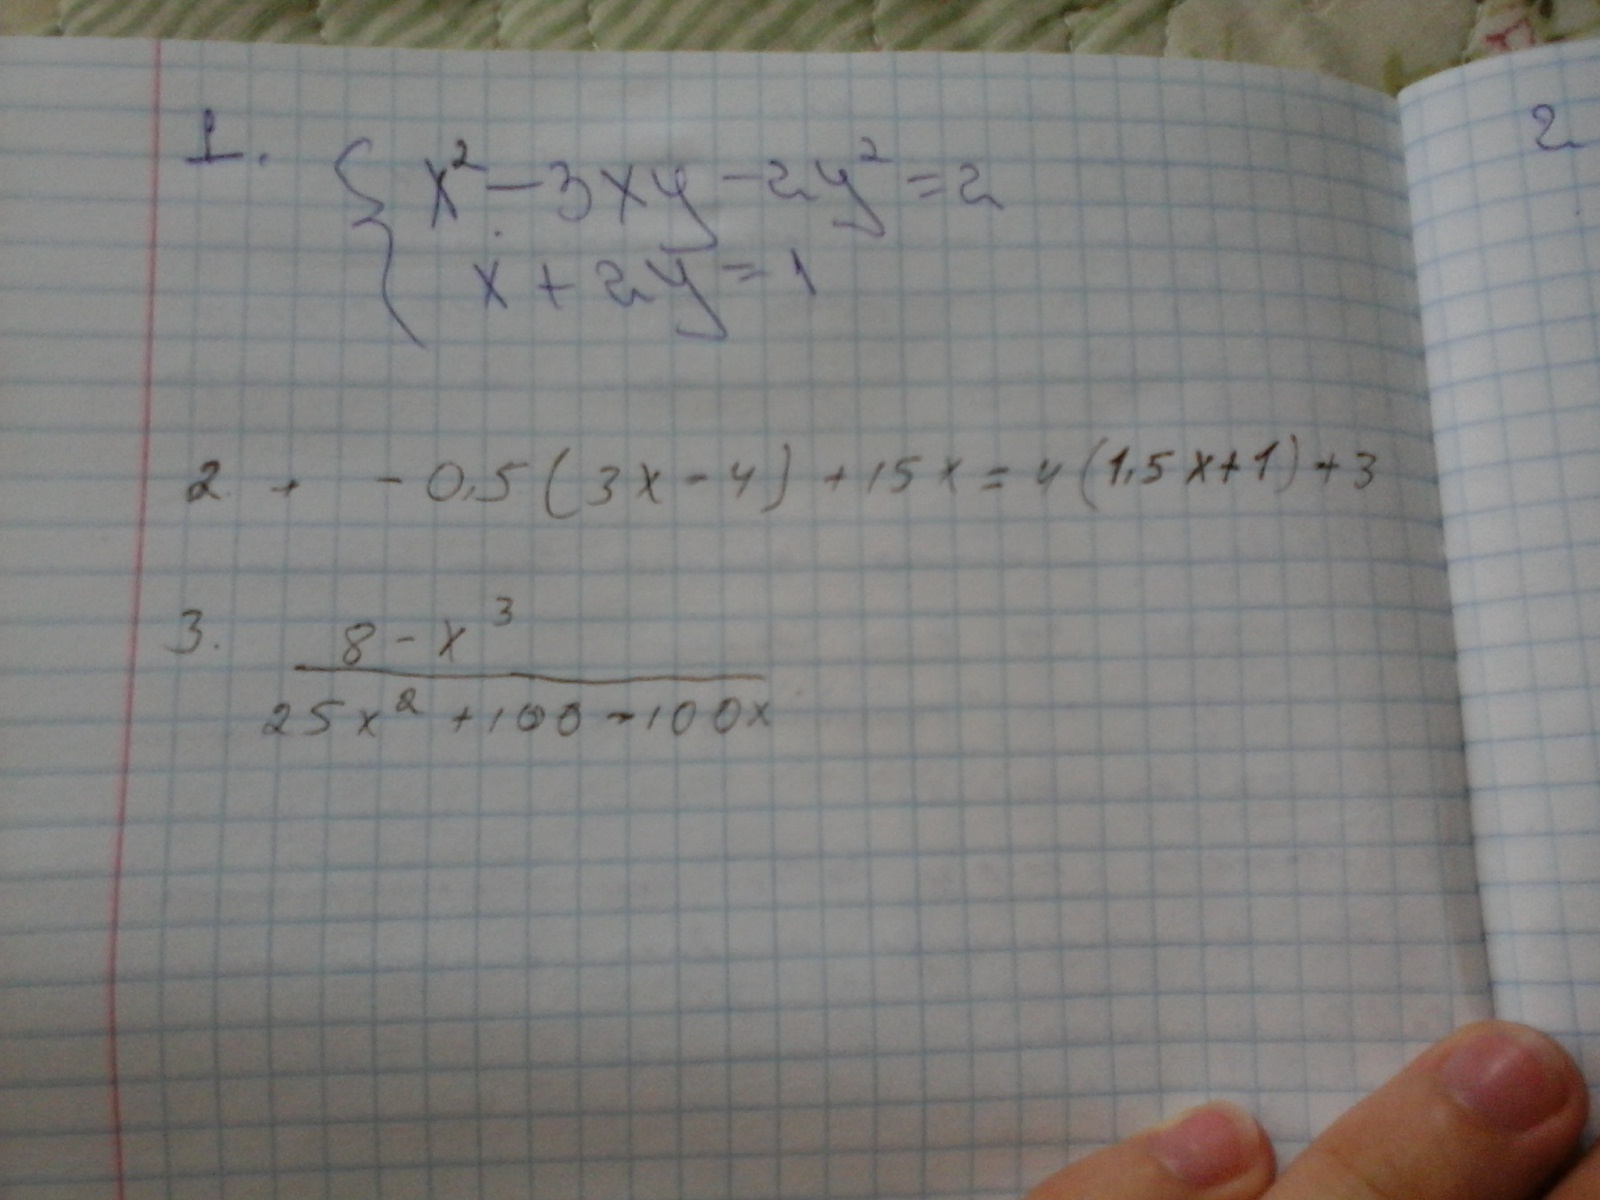 1. { x² - 3xy - 2y² = 2
x + 2y = 1
2. -0,5(3x-4)+15x=4(1,5x+1)+3
3. 8 - x³
25x² + 100 - 100x
2